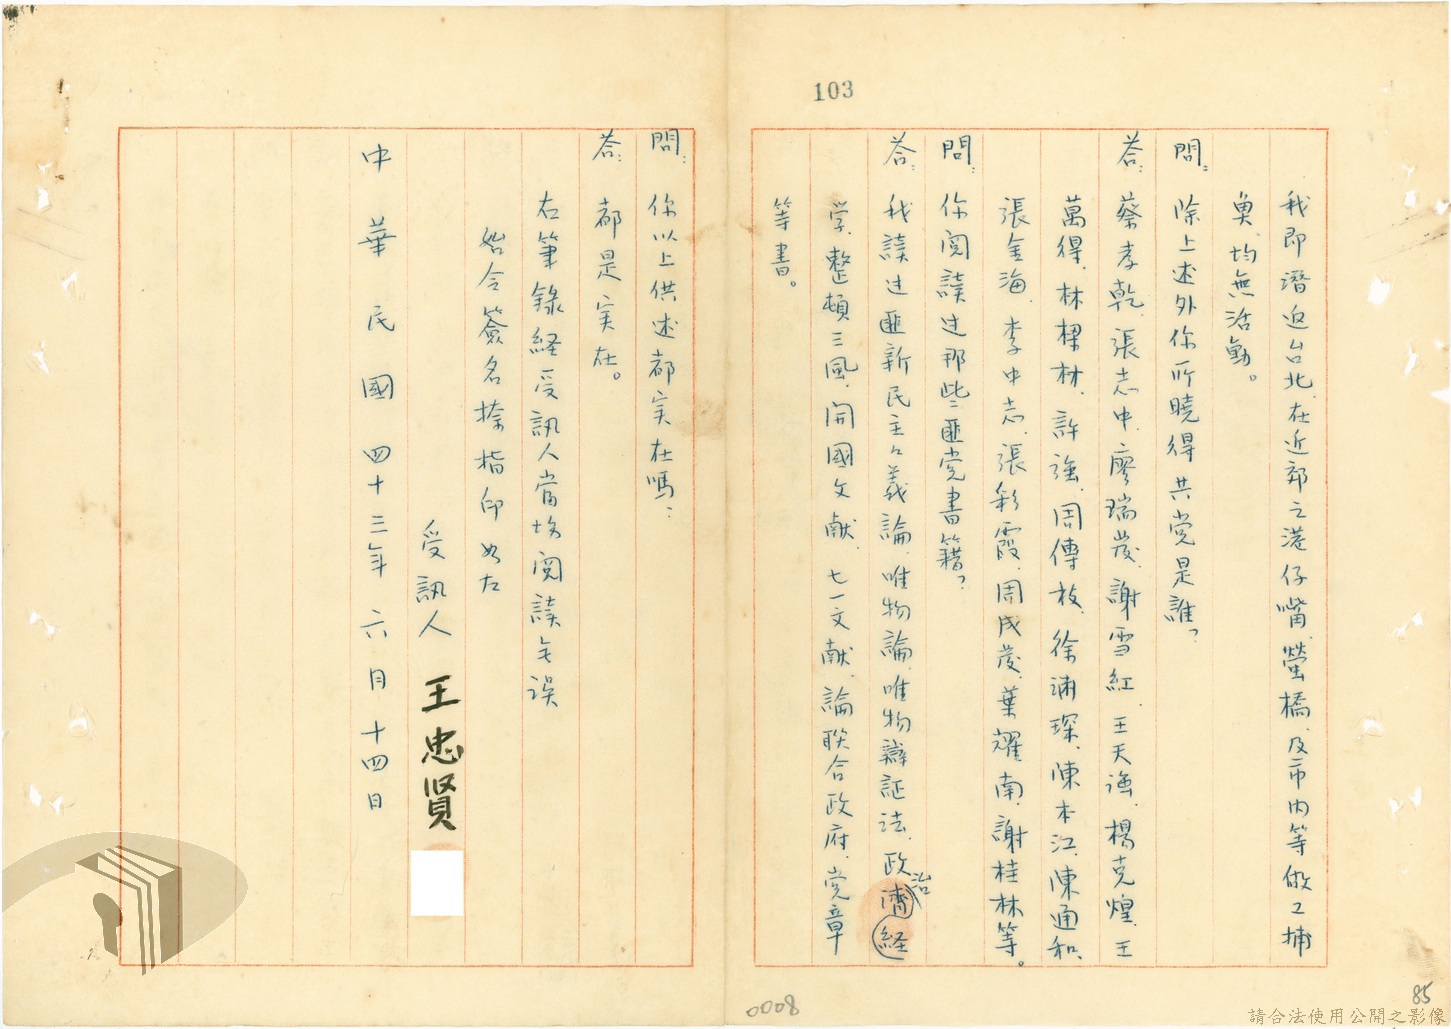 103
我即潛返台北、在近郊之港仔嘴、螢橋、及市內等做工捕
魚、均無活動。
問：除上述外你所曉得共党是誰？
答：蔡孝乾、張志中、廖瑞發、謝雪紅、王天強、楊克煌、王
萬得、林樑材、許強、周傳枝、徐浦琛、陳本江、陳通和、
張金海、李中志、張彩霞、周成發、葉耀南、謝桂林等。
問：你閱讀过那些匪党書籍？
答：我讀过匪新民主々義論、唯物論、唯物辯証法、政治
濟経
学、整頓三風、開國文献、七一文献、論联合政府、党章
等書。
問：你以上供述都実在嗎？
答：都是実在。
右筆錄経受訊人當場閱讀无误
始令簽名捺指印如左
受訊人 王忠賢
中華民國四十三年六月十四日
0008
85
請合法使用公開之影像